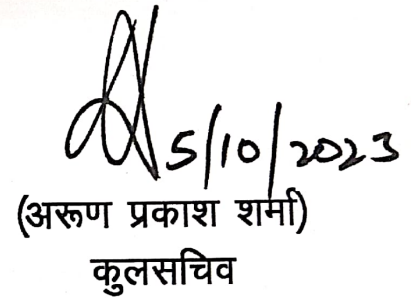 5/10/2023
(अरूण प्रकाश शर्मा)
कुलसचिव